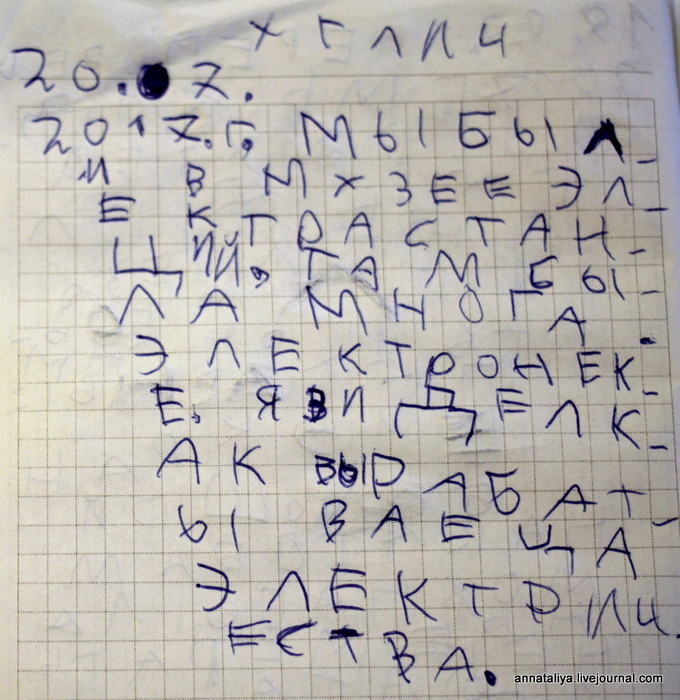 ХГЛПЧ
20.●7.
2017.г. МЫ БЫЛ-
И В МХЗЕЕ ЭЛ-
ЕКТРАСТАН-
ЦИЙ, ТАМ БЫ-
ЛА МНОГА
ЭЛЕКТРОНЕК-
Е. Я ВИДЕЛ К-
АК ВЫРАБАТ-
ЫВАЕЦА
ЭЛЕКТРИЧ-
ЕСТВА.
annataliya.livejournal.com